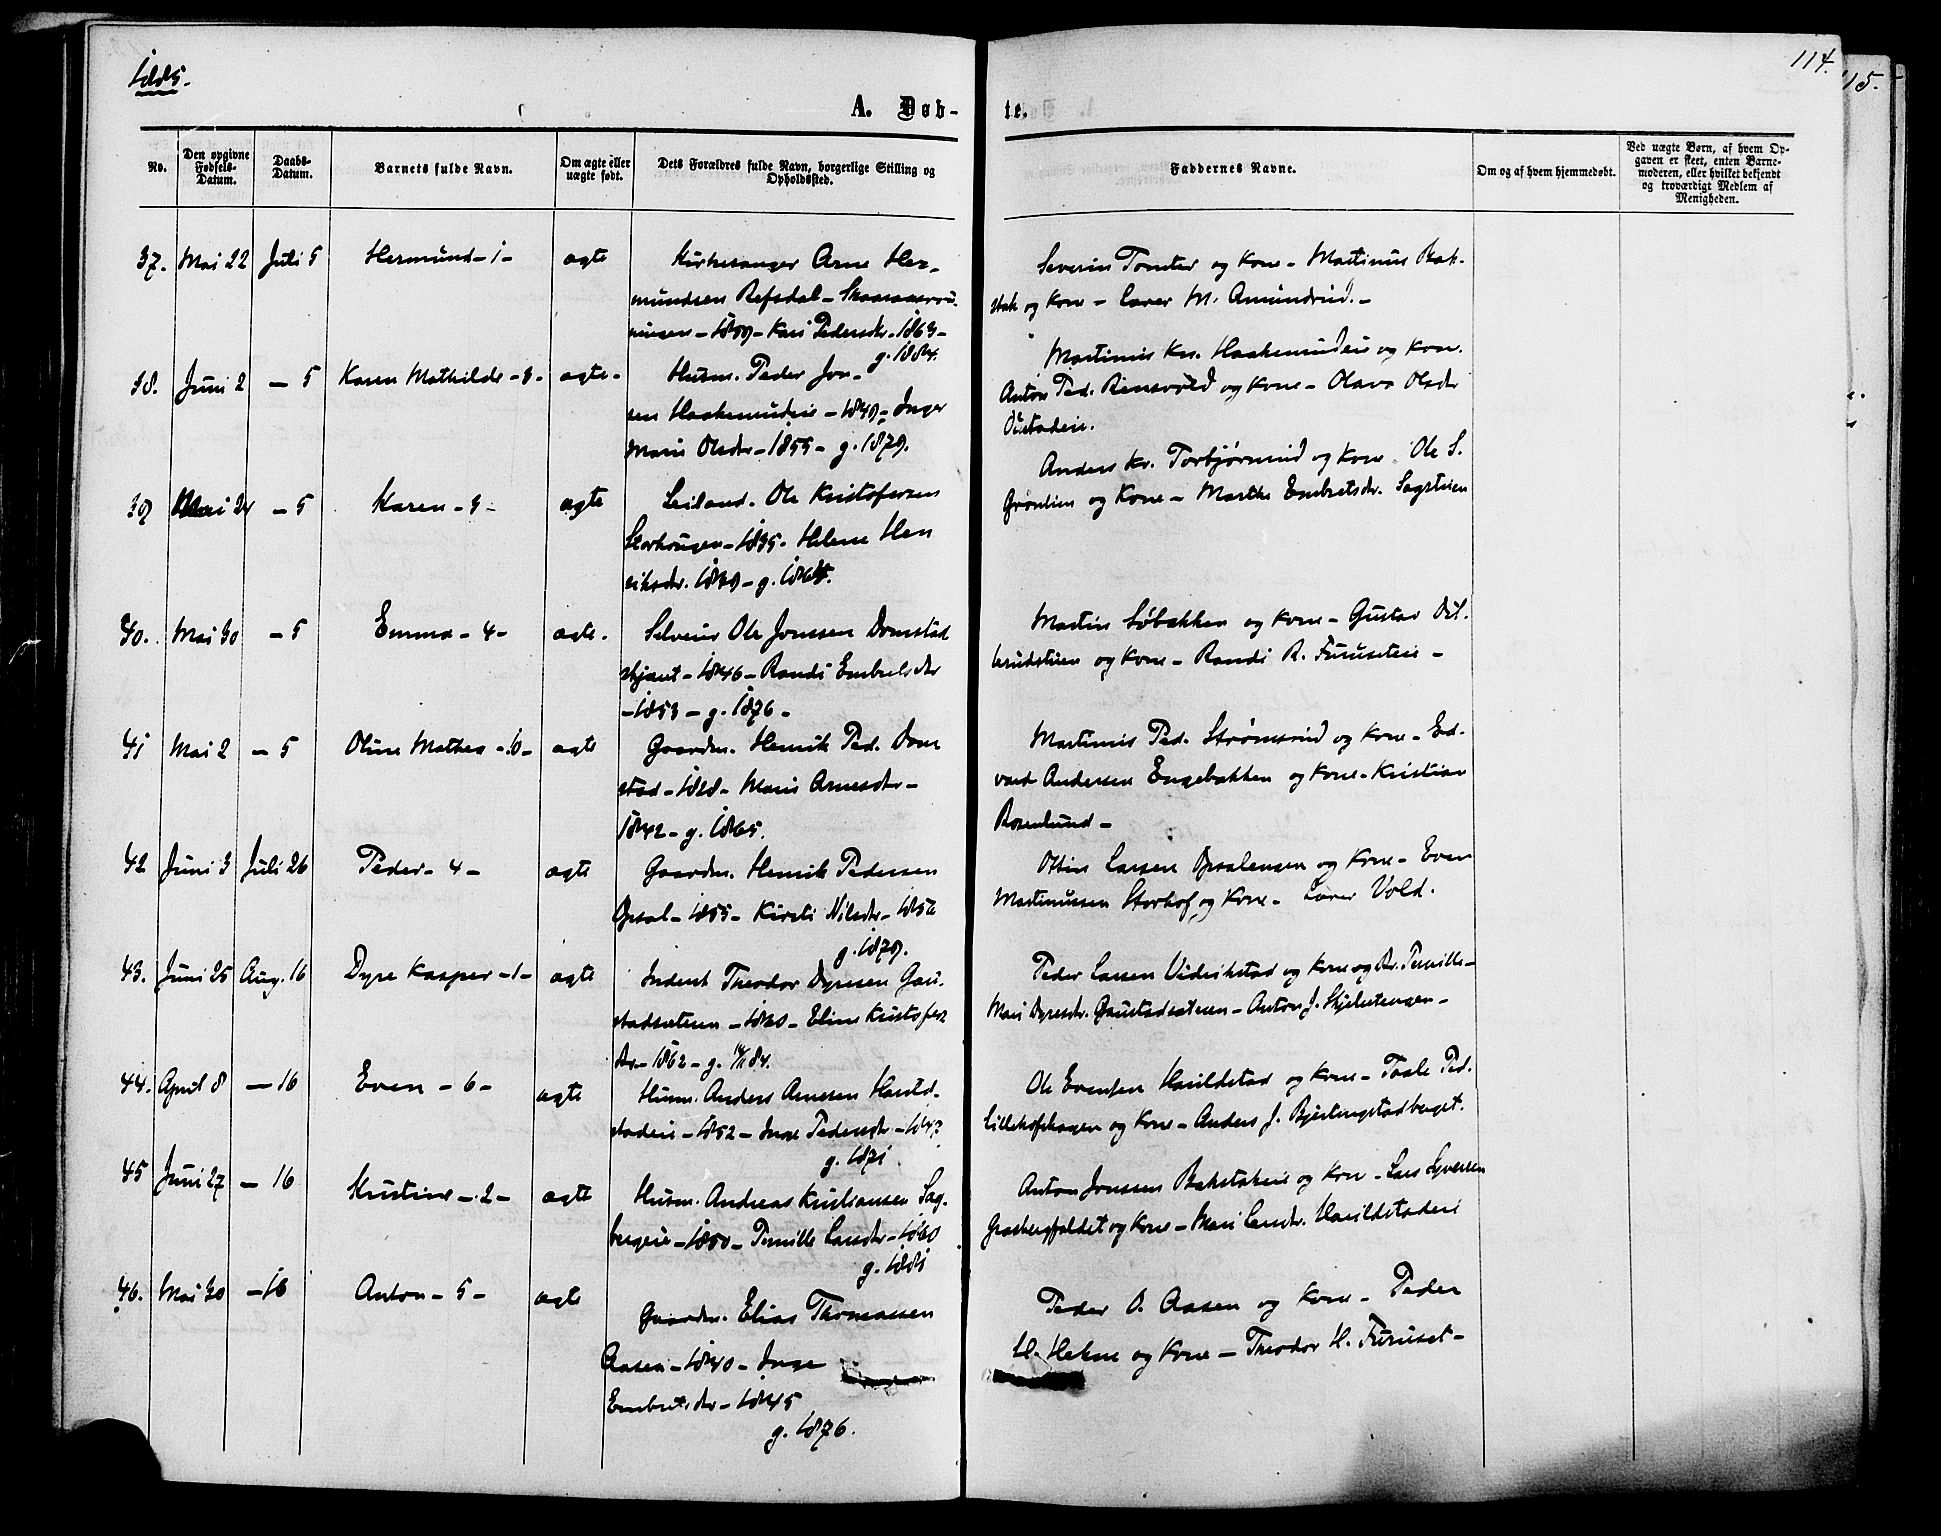 1885.
114.
115.
A. Døb-
te.
No.
Den opgivne Fødsels-Datum.
Daabs-Datum.
Barnets fulde Navn.
Om ægte eller uægte født.
Dets Forældres fulde Navn, borgerlige Stilling og Opholdssted.
Faddernes Navne.
Om og af hvem hjemmedøbt.
Ved uægte Børn, af hvem Opgaven er skeet, enten Barnemoderen, eller hvilket bekjendt og troværdigt Medlem af Menigheden.
37. Mai 22 Juli 5 Hermund - 1 - ægte Kirkesanger Arne Her-
mundsen Refsdal - 1859 - Kari Pedersdr. 1863 -
g. 1884.
Severin Tomter og Kone - Martinus Bak-
stak og Kone - Lærer M. Amundrud. -
38. Juni 2 - 5 Karen Mathilde - 3 - ægte - Husm. Peder Jon-
sen Haakenrudeie - 1849 - Inger
Marie Olsdr - 1855 - g. 1879.
Martinus Kr. Haakenrudeie og Kone.
Anton Ped. Rensvold og Kone - Olava Olsdr
39 Mai 24 - 5 Karen - 9 - ægte Leiland. Ole Kristofersen
Storhaugen - 1835. Helene Hen
riksdr. 1840 - g. 1864.
Anders Kr. Torbjørnrud og Kone Ole S.
Grønlien og Kone - Marthe Embretsdr. Sagstuen
40. Mai 30 - 5 Emma - 4 - ægte - Selveier Ole Jonssen Domstad
skjæret - 1846 - Randi Embretsdr
- 1853 - g. 1876 -
Martin Løbakken og Kone - Gustav Dil-
lerudstuen og Kone - Randi R. Furuseteie -
41 Mai 2 - 5 Oline Mathea - 10 - ægte Gaardm. Henrik Ped. Dom
stad - 1828 - Mari Arnesdr -
1842 - g. 1865.
Martinus Ped. Strømsrud og Kone - Ed-
vard Andersen Engebakken og Kone - Kristian
Rosenlund -
42 Juni 3 Juli 26 Peder - 4 - ægte Gaardm. Henrik Pedersen
Opsal - 1855 - Kirsti Nilsdr - 1856
g. 1879.
Ottin Larsen Opsalengen og Kone - Even
Martinussen Storhof og Kone - Lærer Vold.
43. Juni 25 Aug. 16 Dyre Kasper - 1 - ægte Inderst Theodor Dyresen Gau-
stadsæteren - 1860 - Eline Kristofers
dr. - 1862 - g. 84.
Peder Larsen Viderikstad og Kone og Pernille -
Mari Dyresdr. Gaustadsæteren - Anton J. Skjelsetengen -
44. April 8 - 16 Even - 6 - ægte Husm. Anders Arnesen Harild-
stadeie - 1852 - Inge Pedersdr - 1847
g. 1871
Ole Evensen Harildstad og Kone - Taale Ped.
Lillehofshagen og Kone - Anders J. Bjertengstadberget.
45 Juni 27 - 16 Kristine - 2 - ægte Husm. Andreas Kristiansen Sag-
bergeie - 1850 - Pernille Larsdr - 1860
g. 1881
Anton Jonssen Bakstakeie og Kone - Lars Syversen
Grasbergfaldet og Kone - Mari Larsdr. Harildstadeie
46. Mai 30 - 16 Anton - 5 - ægte Gaardm. Elias Thomassen
Aasen - 1840 - Inge
Embretsdr - 1845
g. 1876.
Peder O. Aasen og Kone - Peder
H. Hekne og Kone - Theodor H. Furuset -